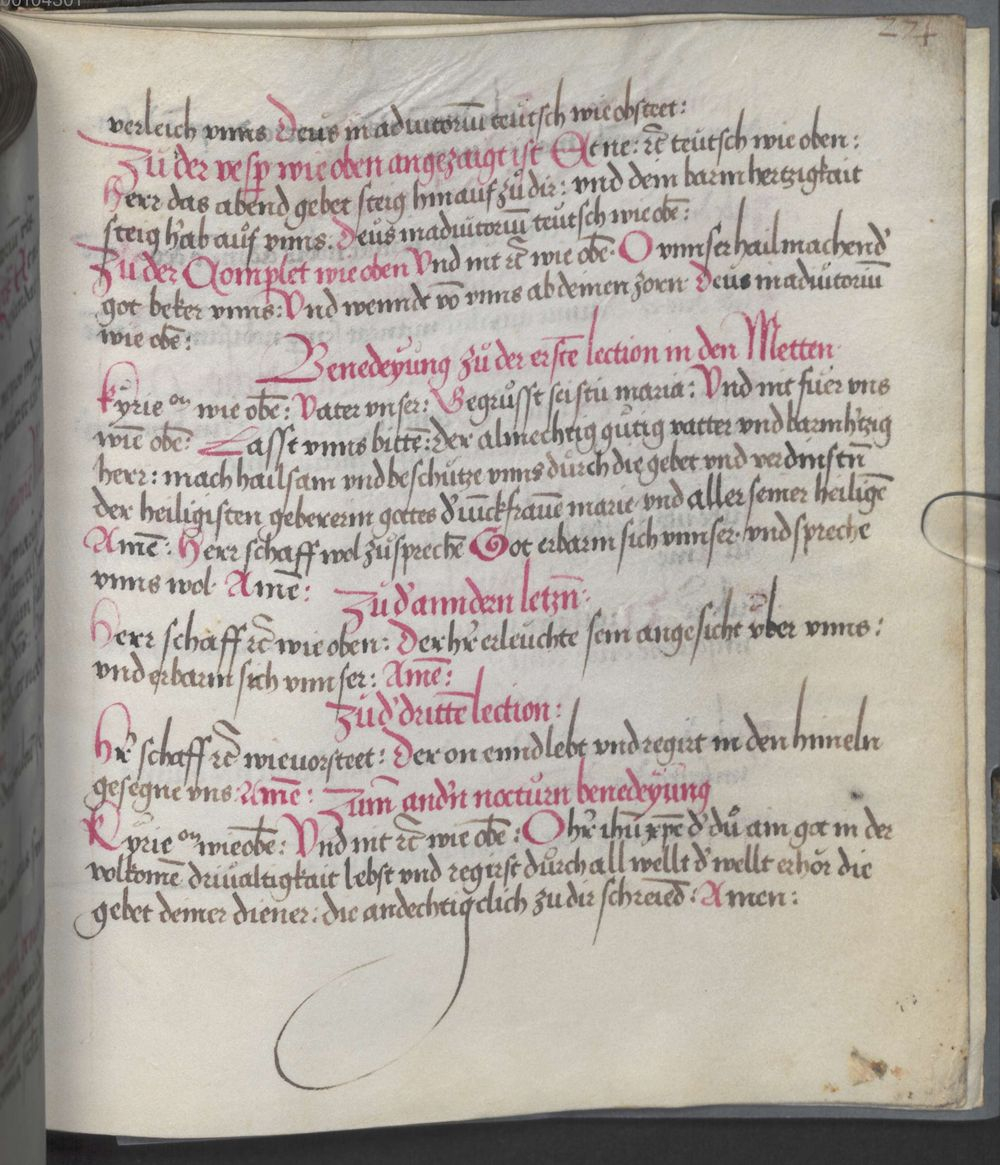 00104301
274
verleich vnns Deus in adiutoriū teutsch wie obsteet:
Zů der vesp̄ wie oben angezaigt ist Et ne: ⁊c̄ teutsch wie oben:
Herr das abend gebet steig hinauf zů dir: vnd dein barmhertzigkait
steig h'ab auf vnns. Deus in adiutoriū teutsch wie obē:
Zu der Complet wie oben Vnd nit ⁊c̄ wie obē. O vnnser hailmachend'
got beker vnns: Vnd wenndt vō vnns ab deinen zorn Deus in adiutoriū
wie obē:
Benedeyung zů der erstē lection in den Metten.
Kyrie on wie obē: Vater vnser: Gegrůsst seistu maria: Vnd nit fuer vns
wie obē: Lasst vnns bittē: der almechtig gütig vatter vnd barmh'tzig
herr: mach hailsam vnd beschütze vnns durch die gebet vnd verdinstn̄
der heiligisten gebererin gottes d' iunckfrauē marie vnd aller seiner heiligē
Amē: Herr schaff wol zů sprechē Got erbarm sich vnnser. vnd spreche
vnns wol. Amē:
Zu d' anndern letzn̄:
Herr schaff ⁊c̄ wie oben: Der hr̄ erleuchte sein angesicht vber vnns:
vnd erbarm sich vnnser: Amē:
Zu d' drittē lection:
Hr̄ schaff ⁊c̄ wie vorsteet: Der on ennd lebt vnd regirt in den himeln
gesegne vns Amē: Zum and'n nocturn benedeyung
Kyrie on wie obē: Vnd nit ⁊c̄ wie obē: O hr̄ ihū xp̄e d' du ain got in der
volkomē driualtigkait lebst vnd regirst durch all wellt d' wellt erhör die
gebet deiner diener: die andechtigclich zu dir schreiēd: Amen: